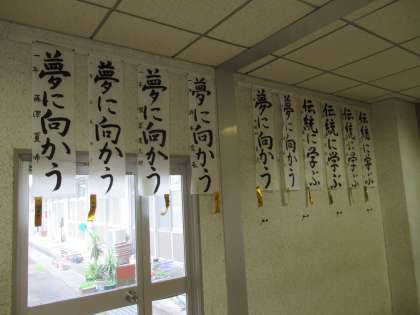 夢に向かう
夢に向かう
夢に向かう
夢に向かう
夢に向かう
夢に向かう
伝統に学ぶ
伝統に学ぶ
伝統に学ぶ
伝統に学ぶ